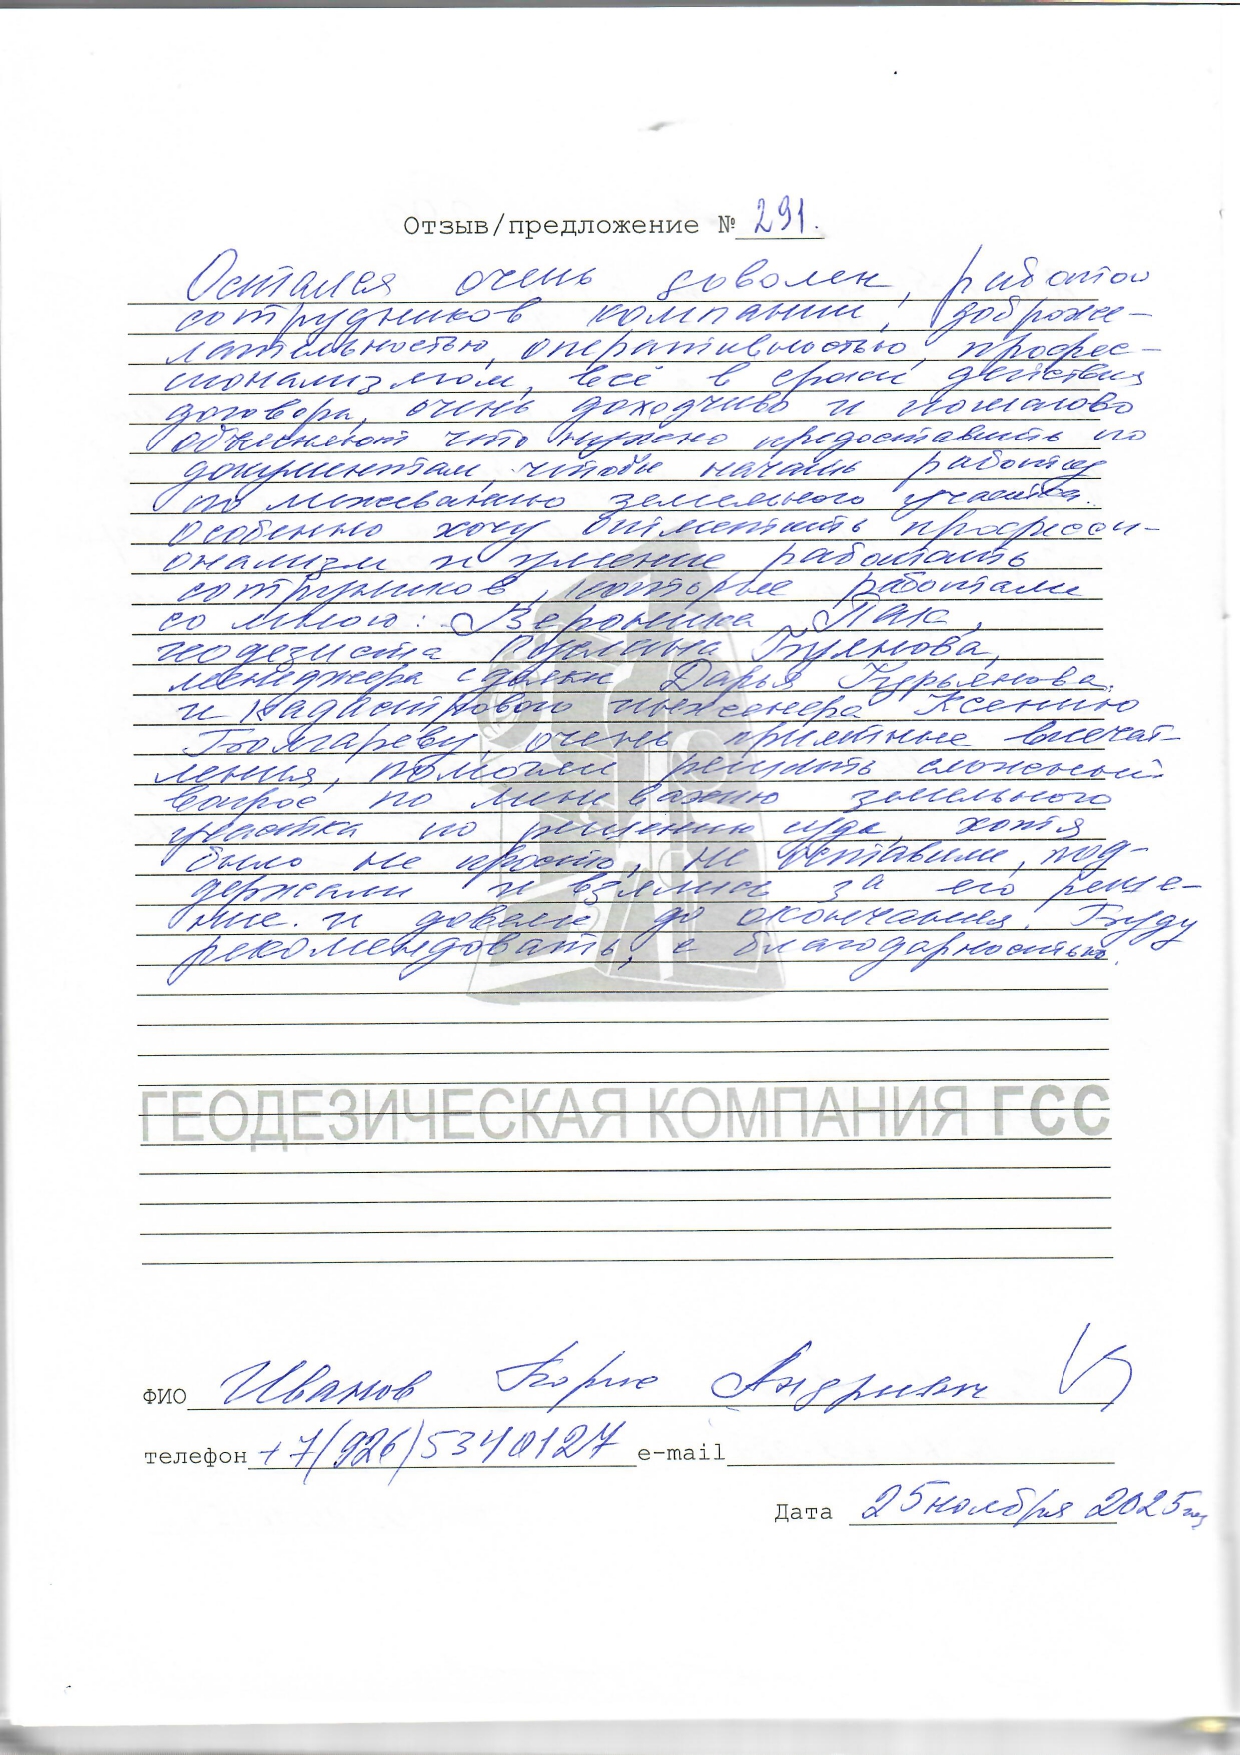 Отзыв/предложение № 291.
Остался очень доволен, работой
сотрудников компании, доброже-
лательностью, оперативностью, профес-
сионализмом, всё в сроки действия
договора, очень доходчиво и
объясняют что нужно предоставить по
документам, чтобы начать работу
по межеванию земельного участка.
Особенно хочу отметить професси-
онализм и умение работать
сотрудников, которые работали
со мною: Вероника Пак,
геодезиста Руслана Буянова,
менеджера сделки Дарья Курьянова.
и кадастрового инженера Ксению
Болгареву, очень приятные впечат-
ления, помогли решить сложный
вопрос по межеванию земельного
участка по решению суда, хотя
было не просто, не оставили, под-
держали и взялись за его реше-
ние. и довели до окончания. Буду
рекомендовать, с благодарностью.
ГЕОДЕЗИЧЕСКАЯ КОМПАНИЯ ГСС
ФИО Иванов Андреевич
телефон +7(926)5340127 e-mail
Дата 25 ноября 2025